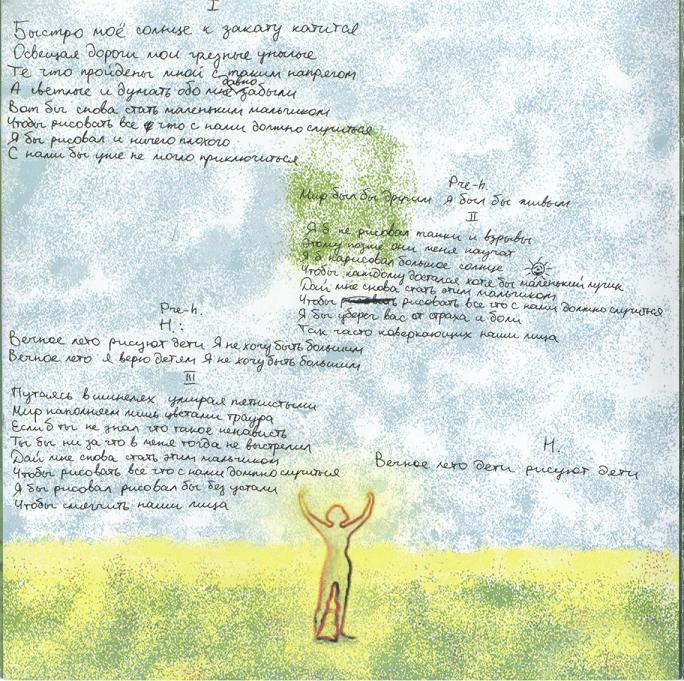 I
Быстро моё солнце к закату катится
Освещая дороги мои грязные унылые
Те что пройдены мной с таким напрягом
А светлые и думать обо мне давно забыли
Вот бы снова стать маленьким мальчиком
Чтобы рисовать все что с нами должно случиться
Я бы рисовал и ничего плохого
С нами бы уже не могло приключиться
Pre-h.
Мир был бы другим Я был бы живым
II
Я б не рисовал танки и взрывы
Этому позже они меня научат
Я б нарисовал большое солнце
Чтобы каждому достался хотя бы маленький лучик
Дай мне снова стать этим мальчиком
Чтобы рисовать все что с нами должно случиться
Я бы уберег вас от страха и боли
Так часто коверкающих наши лица
Pre-h.
H.:
Вечное лето рисуют дети Я не хочу быть большим
Вечное лето я верю детям Я не хочу быть большим
III
Путаясь в шинелях умирая пятнистыми
Мир наполняем лишь цветами траура
Если б ты не знал что такое ненависть
Ты бы ни за что в меня тогда не выстрелил
Дай мне снова стать этим мальчиком
Чтобы рисовать все что с нами должно случиться
Я бы рисовал рисовал бы без устали
Чтобы смягчить наши лица
H.
Вечное лето дети рисуют дети